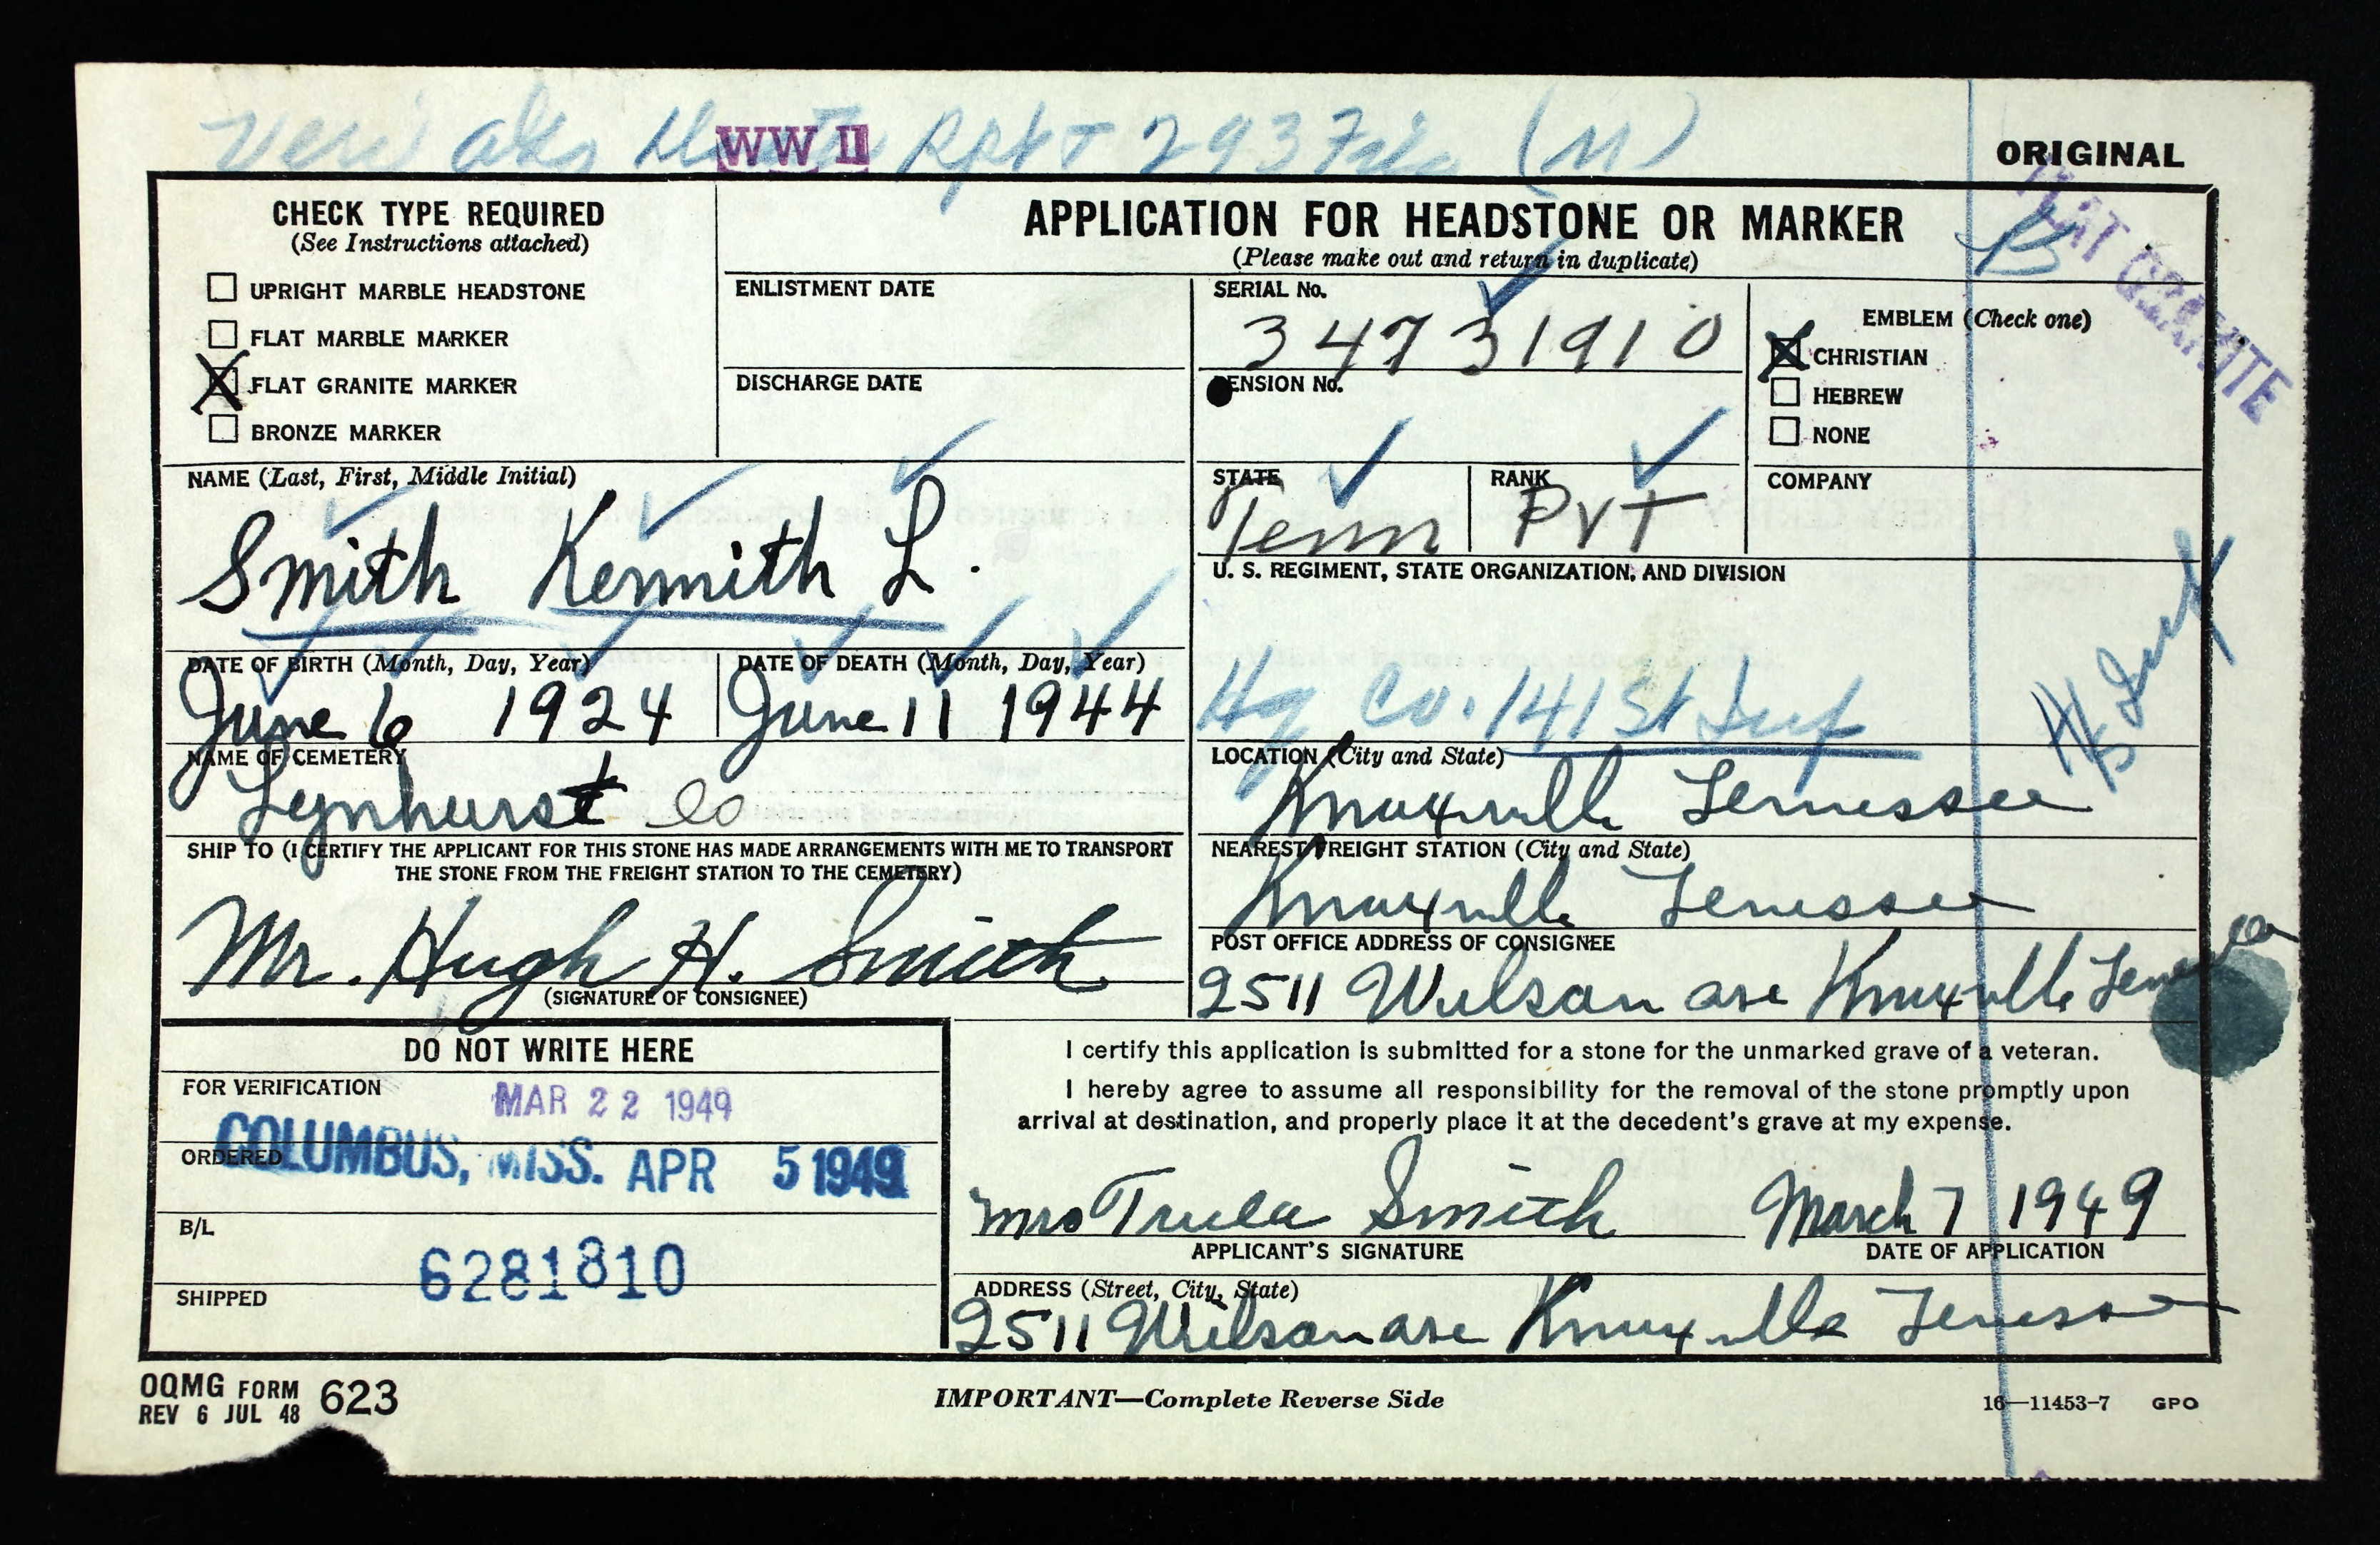 WW II Rpt 293 File (M)
ORIGINAL
FLAT GRANITE
CHECK TYPE REQUIRED
(See Instructions attached)
UPRIGHT MARBLE HEADSTONE
FLAT MARBLE MARKER
X FLAT GRANITE MARKER
BRONZE MARKER
APPLICATION FOR HEADSTONE OR MARKER
(Please make out and return in duplicate)
ENLISTMENT DATE
DISCHARGE DATE
SERIAL No.
34731910
PENSION No.
EMBLEM (Check one)
X CHRISTIAN
HEBREW
NONE
NAME (Last, First, Middle Initial)
Smith Kennith L.
STATE
Tenn
RANK
PVT
COMPANY
U. S. REGIMENT, STATE ORGANIZATION, AND DIVISION
Hq Co. 141st Inf
DATE OF BIRTH (Month, Day, Year)
June 6 1924
DATE OF DEATH (Month, Day, Year)
June 11 1944
NAME OF CEMETERY
Lynhurst
LOCATION (City and State)
Knoxville Tennessee
SHIP TO (I CERTIFY THE APPLICANT FOR THIS STONE HAS MADE ARRANGEMENTS WITH ME TO TRANSPORT
THE STONE FROM THE FREIGHT STATION TO THE CEMETERY)
Mr. Hugh H. Smith
(SIGNATURE OF CONSIGNEE)
NEAREST FREIGHT STATION (City and State)
Knoxville Tenessee
POST OFFICE ADDRESS OF CONSIGNEE
2511 Wilson ave Knoxville Tenessee
DO NOT WRITE HERE
FOR VERIFICATION
MAR 22 1949
ORDERED
COLUMBUS, MISS. APR 5 1949
B/L
6281810
SHIPPED
I certify this application is submitted for a stone for the unmarked grave of a veteran.
I hereby agree to assume all responsibility for the removal of the stone promptly upon
arrival at destination, and properly place it at the decedent's grave at my expense.
Mrs Trula Smith March 7 1949
APPLICANT'S SIGNATURE DATE OF APPLICATION
ADDRESS (Street, City, State)
2511 Wilson ave Knoxville Teness
OQMG FORM 623
REV 6 JUL 48
IMPORTANT—Complete Reverse Side
16—11453-7 GPO